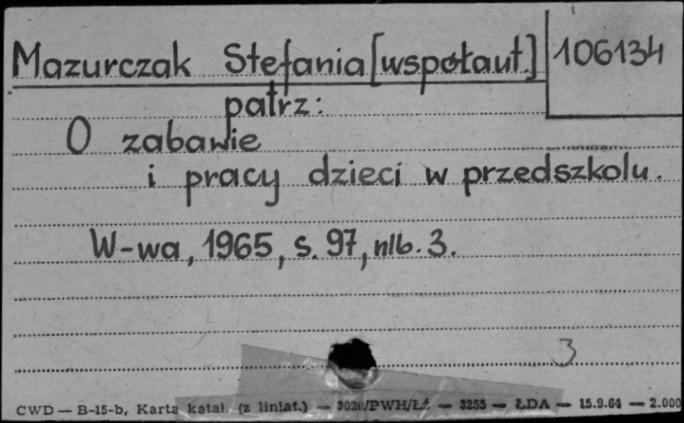 Mazurczak Stefania [współaut.] 106134
patrz:
O zabawie
i pracy dzieci w przedszkolu.
W-wa, 1965, s. 97, nlb. 3.
3
CWD — B-15-b, Karta katal. (z liniat.) — /PWH/ŁŻ — 3255 — ŁDA — 15.9.64 — 2.000